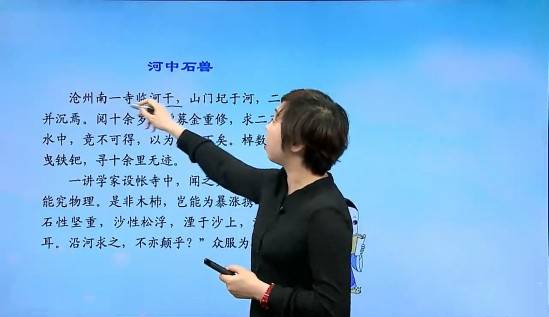 河中石兽
沧州南一寺临河干，山门圮于河，二
并沉焉。阅十余岁 募金重修，求二
水中，竟不可得，以为 矣。棹数
曳铁钯，寻十余里无迹。
一讲学家设帐寺中，闻之
能究物理。是非木杮，岂能为暴涨携
石性坚重，沙性松浮，湮于沙上，
耳。沿河求之，不亦颠乎？”众服为